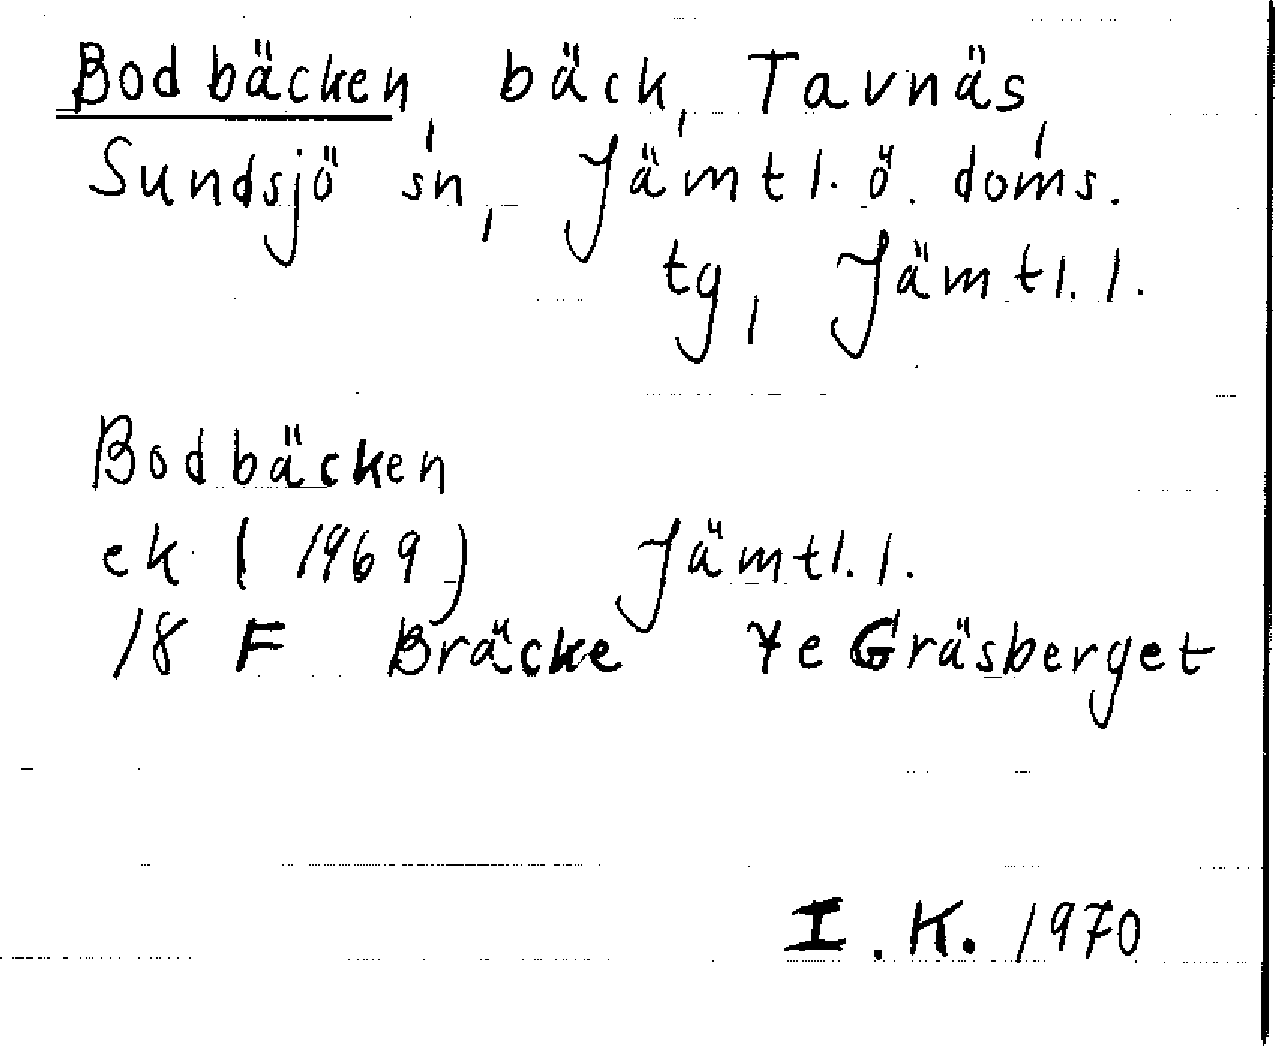 Bodbäcken, bäck, Tavnäs,
Sundsjö sn, Jämtl. ö. doms.
tg, Jämtl. l.
Bodbäcken
ek (1969) Jämtl. l.
18 F Bräcke 7e Gräsberget
I. K. 1970